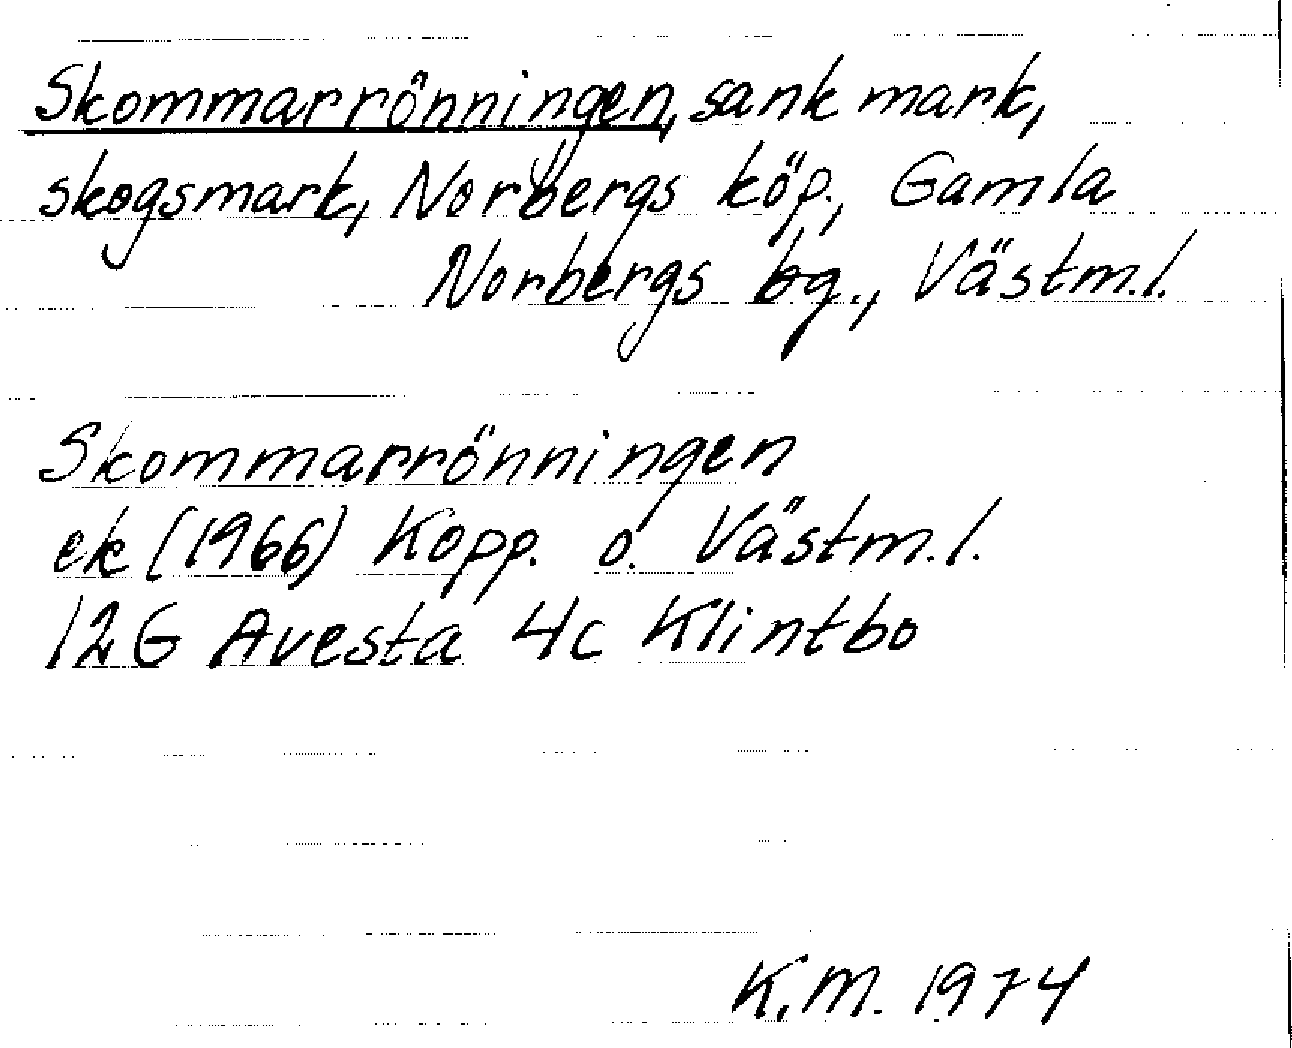 Skommarrönningen, sank mark,
skogsmark, Norbergs köp., Gamla
Norbergs bg., Västm.l.
Skommarrönningen
ek (1966) Kopp. o. Västm.l.
12G Avesta 4c Klintbo
K.M. 1974